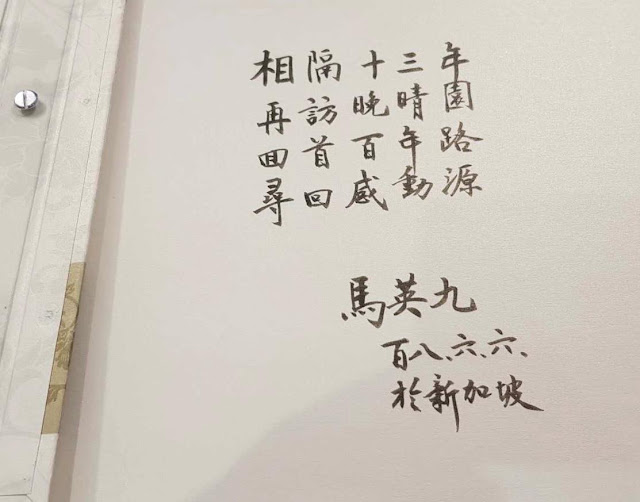 相隔十三年
再訪晚晴園
囬首百年路
尋回感動源
馬英九
百八、六、六、
於新加坡